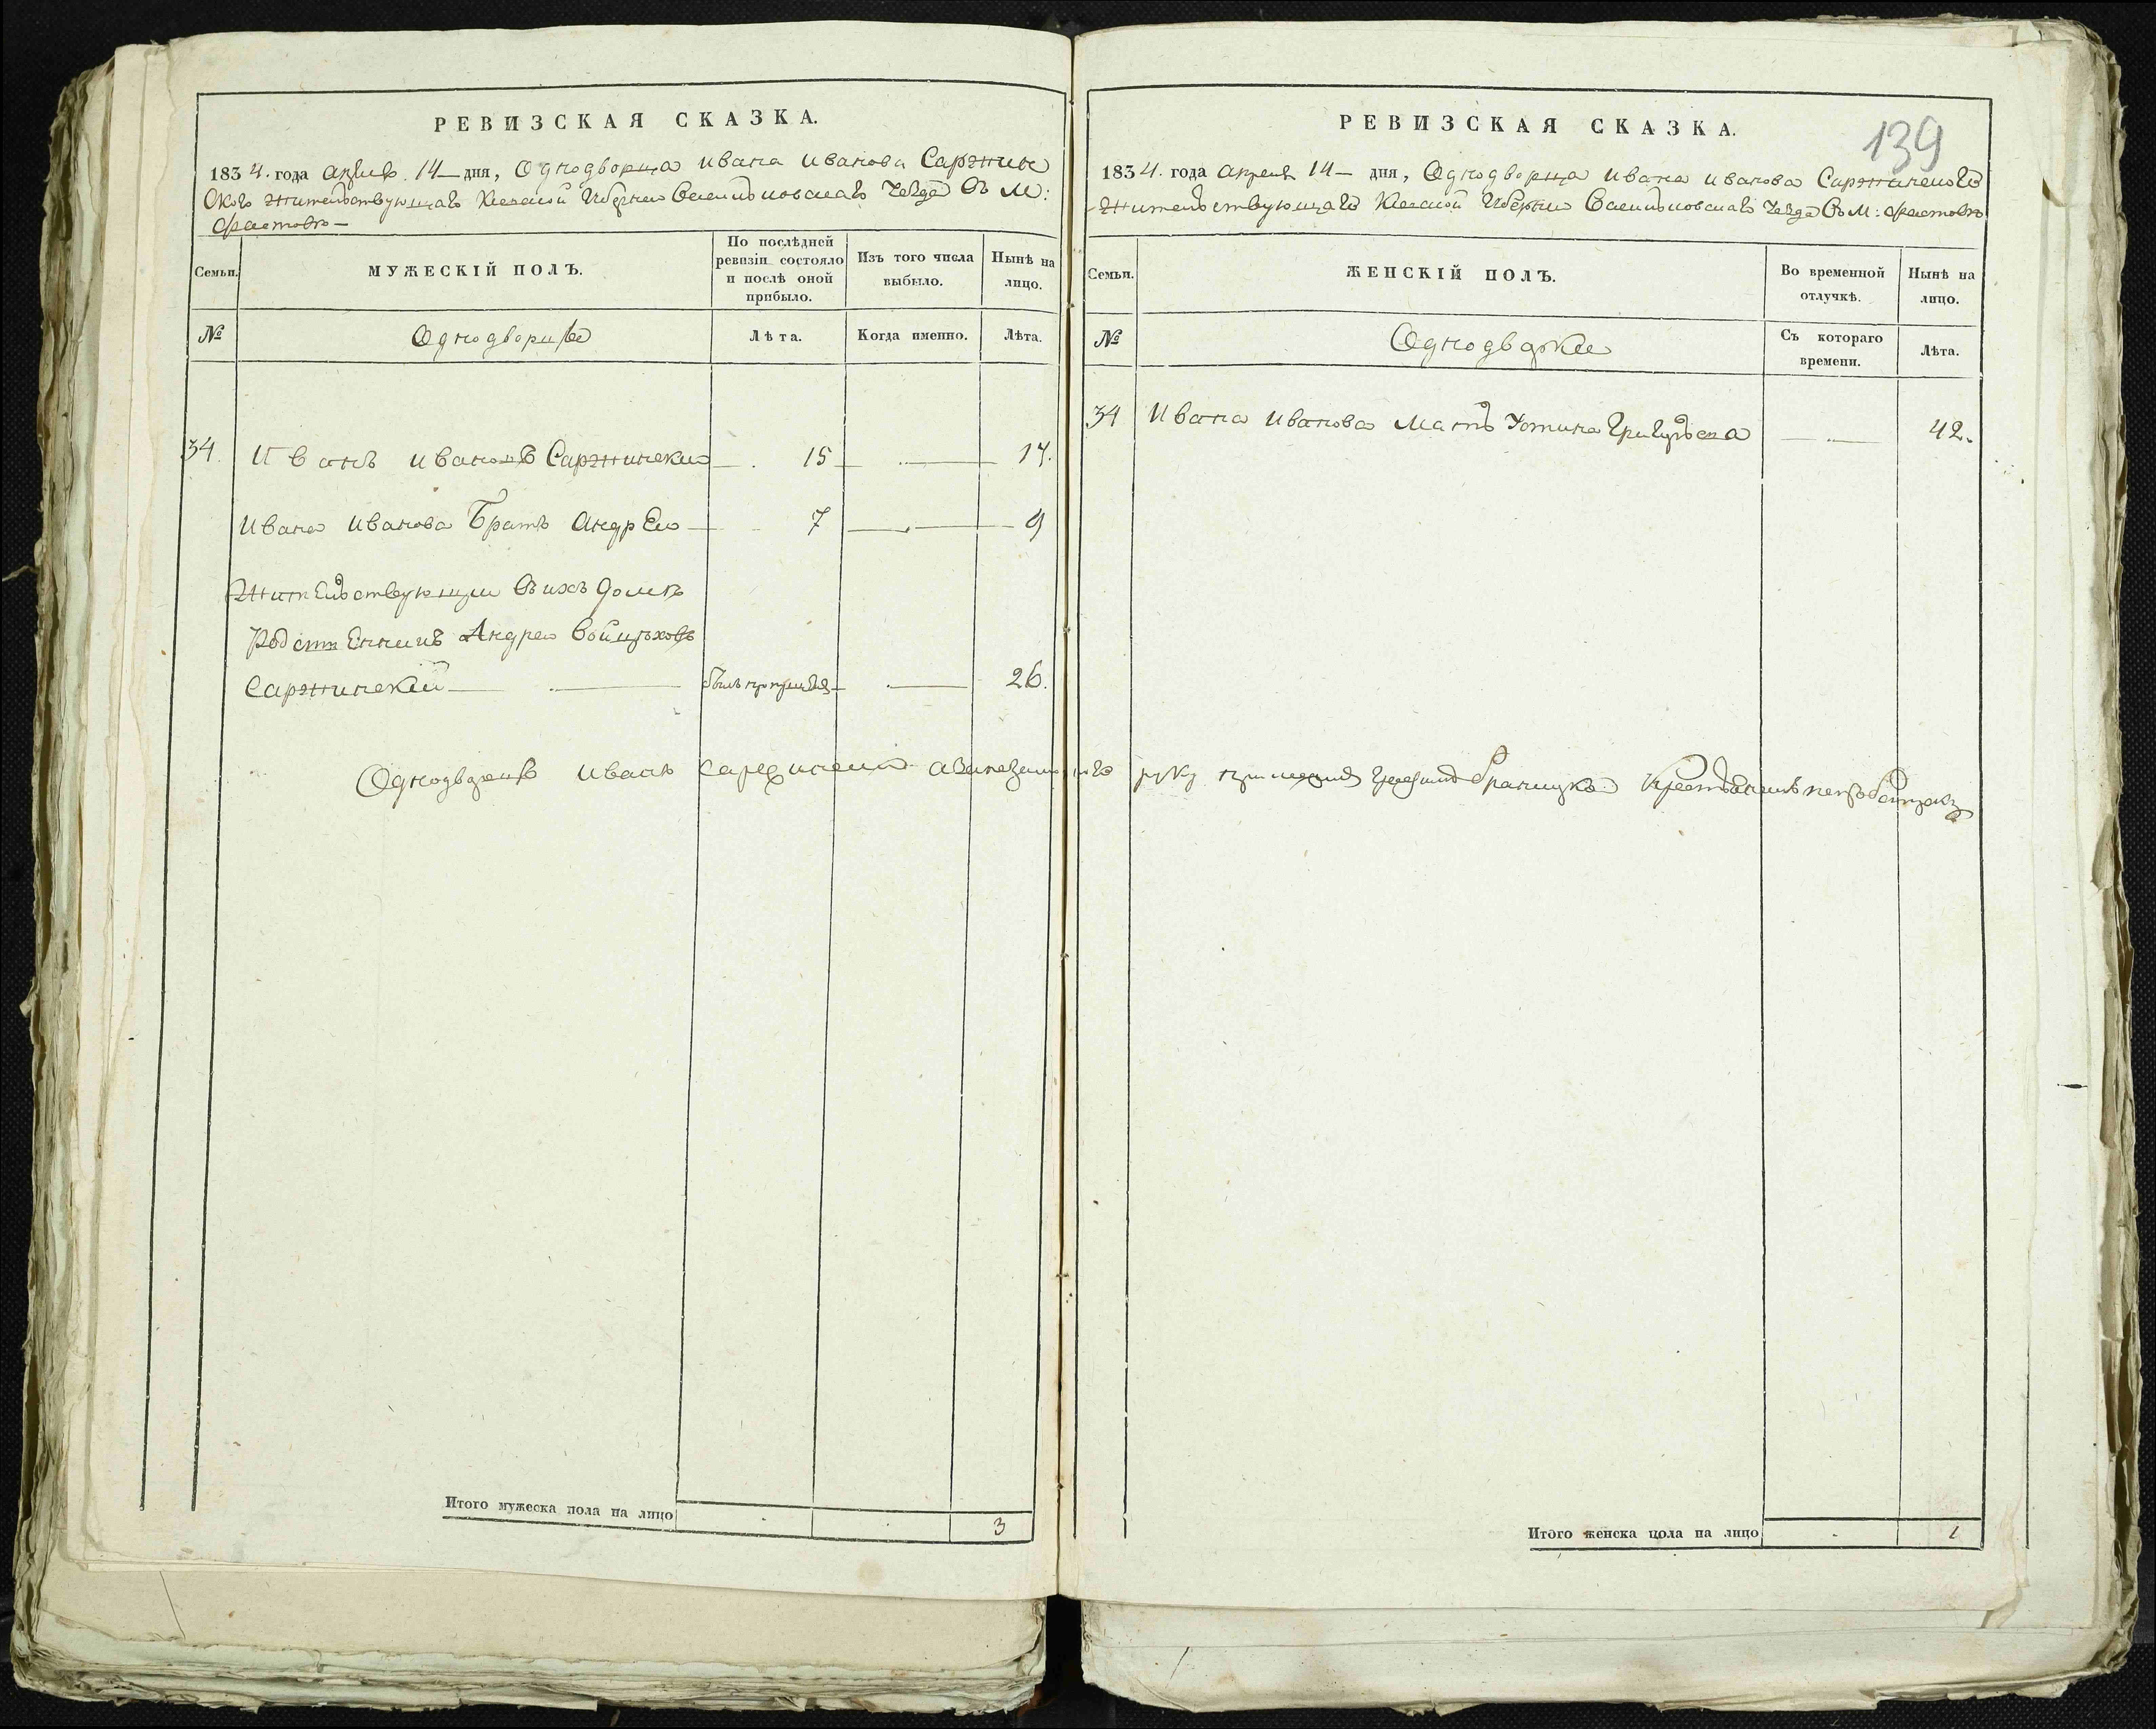 РЕВИЗСКАЯ СКАЗКА.
1834. года апреля 14 дня, Однодворца Ивана Иванова Саржин
ского жительствующаго Киевской Губернии Васильковскаго Уезда Въ М:
Фастове
Семьи.
МУЖЕСКІЙ ПОЛЪ.
По послѣдней ревизіи состояло и послѣ оной прибыло.
Изъ того числа выбыло.
Нынѣ на лицо.
№
Однодворцы
Лѣта.
Когда именно.
Лѣта.
34. Иванъ Ивановъ Саржинский 15 17.
Ивана Иванова Братъ Андрей 7 9
Жительствующии Въ ихъ Доме
Родственникъ Андрей Войцеховъ
Саржинский 26.
Однодворецъ Иванъ Саржинский а вместо его руку приложилъ
Итого мужеска пола на лицо 3
139
РЕВИЗСКАЯ СКАЗКА.
1834. года апреля 14 дня, Однодворца Ивана Иванова Саржинского
Жительствующаго Киевской Губернии Васильковскаго Уезда Въ М: Фастове
Семьи.
ЖЕНСКІЙ ПОЛЪ.
Во временной отлучкѣ.
Нынѣ на лицо.
№
Однодворки
Съ котораго времени.
Лѣта.
34 Ивана Иванова Мать Устина Григорьева 42.
Итого женска пола на лицо 1